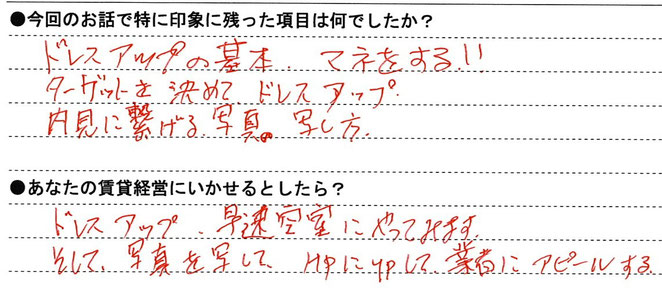 ●今回のお話で特に印象に残った項目は何でしたか？
ドレスアップの基本、マネをする!!
ターゲットを決めてドレスアップ.
内見に繋げる写真。写し方.
●あなたの賃貸経営にいかせるとしたら？
ドレスアップ、早速空室にやってみます.
そして、写真を写して、HPにupして、業者にアピールする.